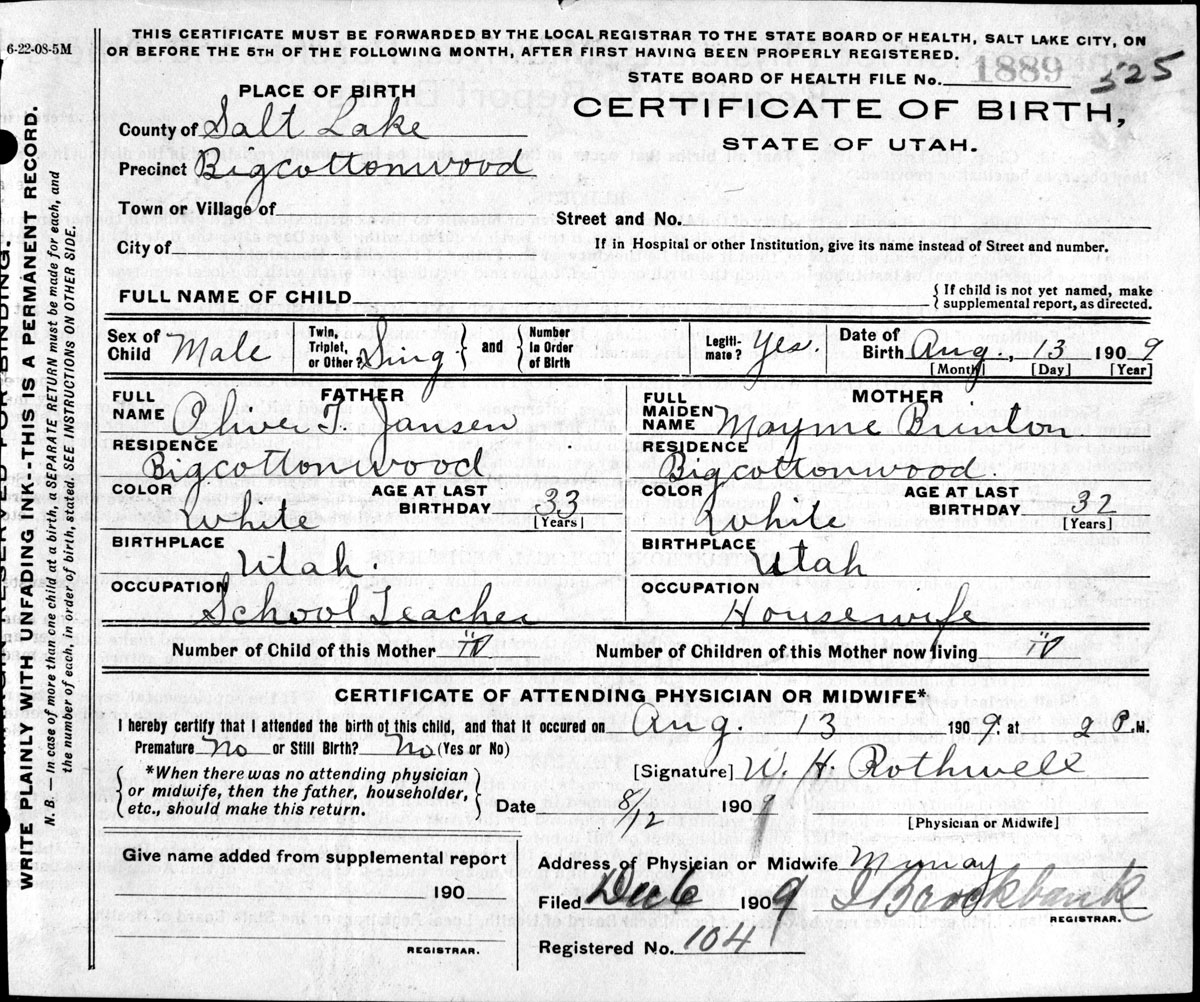 THIS CERTIFICATE MUST BE FORWARDED BY THE LOCAL REGISTRAR TO THE STATE BOARD OF HEALTH, SALT LAKE CITY, ON
OR BEFORE THE 5TH OF THE FOLLOWING MONTH, AFTER FIRST HAVING BEEN PROPERLY REGISTERED.
6-22-08-5M
STATE BOARD OF HEALTH FILE No. 1889 525
PLACE OF BIRTH
CERTIFICATE OF BIRTH,
STATE OF UTAH.
County of Salt Lake
Precinct Bigcottonwood
Town or Village of
Street and No.
City of
If in Hospital or other Institution, give its name instead of Street and number.
FULL NAME OF CHILD
{ If child is not yet named, make
{ supplemental report, as directed.
Sex of Child Male Twin, Triplet, or Other? Sing } and { Number in Order of Birth Legiti-mate? Yes. Date of Birth Aug., 13 1909
[Month] [Day] [Year]
FATHER
FULL NAME Oliver T. Jansen
RESIDENCE
Bigcottonwood
COLOR White AGE AT LAST BIRTHDAY 33
[Years]
BIRTHPLACE
Utah.
OCCUPATION
School Teacher
MOTHER
FULL MAIDEN NAME Mayme Brinton
RESIDENCE
Bigcottonwood
COLOR White AGE AT LAST BIRTHDAY 32
[Years]
BIRTHPLACE
Utah
OCCUPATION
Housewife
Number of Child of this Mother IV Number of Children of this Mother now living IV
CERTIFICATE OF ATTENDING PHYSICIAN OR MIDWIFE*
I hereby certify that I attended the birth of this child, and that it occured on Aug. 13 1909. at 2 P.M.
Premature No or Still Birth? No (Yes or No)
*When there was no attending physician
or midwife, then the father, householder,
etc., should make this return.
[Signature] W. H. Rothwell
Date 8/12 1909
[Physician or Midwife]
Give name added from supplemental report
190
REGISTRAR.
Address of Physician or Midwife Murray
Filed Dec 6 1909 J Brockbank
REGISTRAR.
Registered No. 104
WRITE PLAINLY WITH UNFADING INK-THIS IS A PERMANENT RECORD.
N. B. — In case of more than one child at a birth, a SEPARATE RETURN must be made for each, and
the number of each, in order of birth, stated. SEE INSTRUCTIONS ON OTHER SIDE.